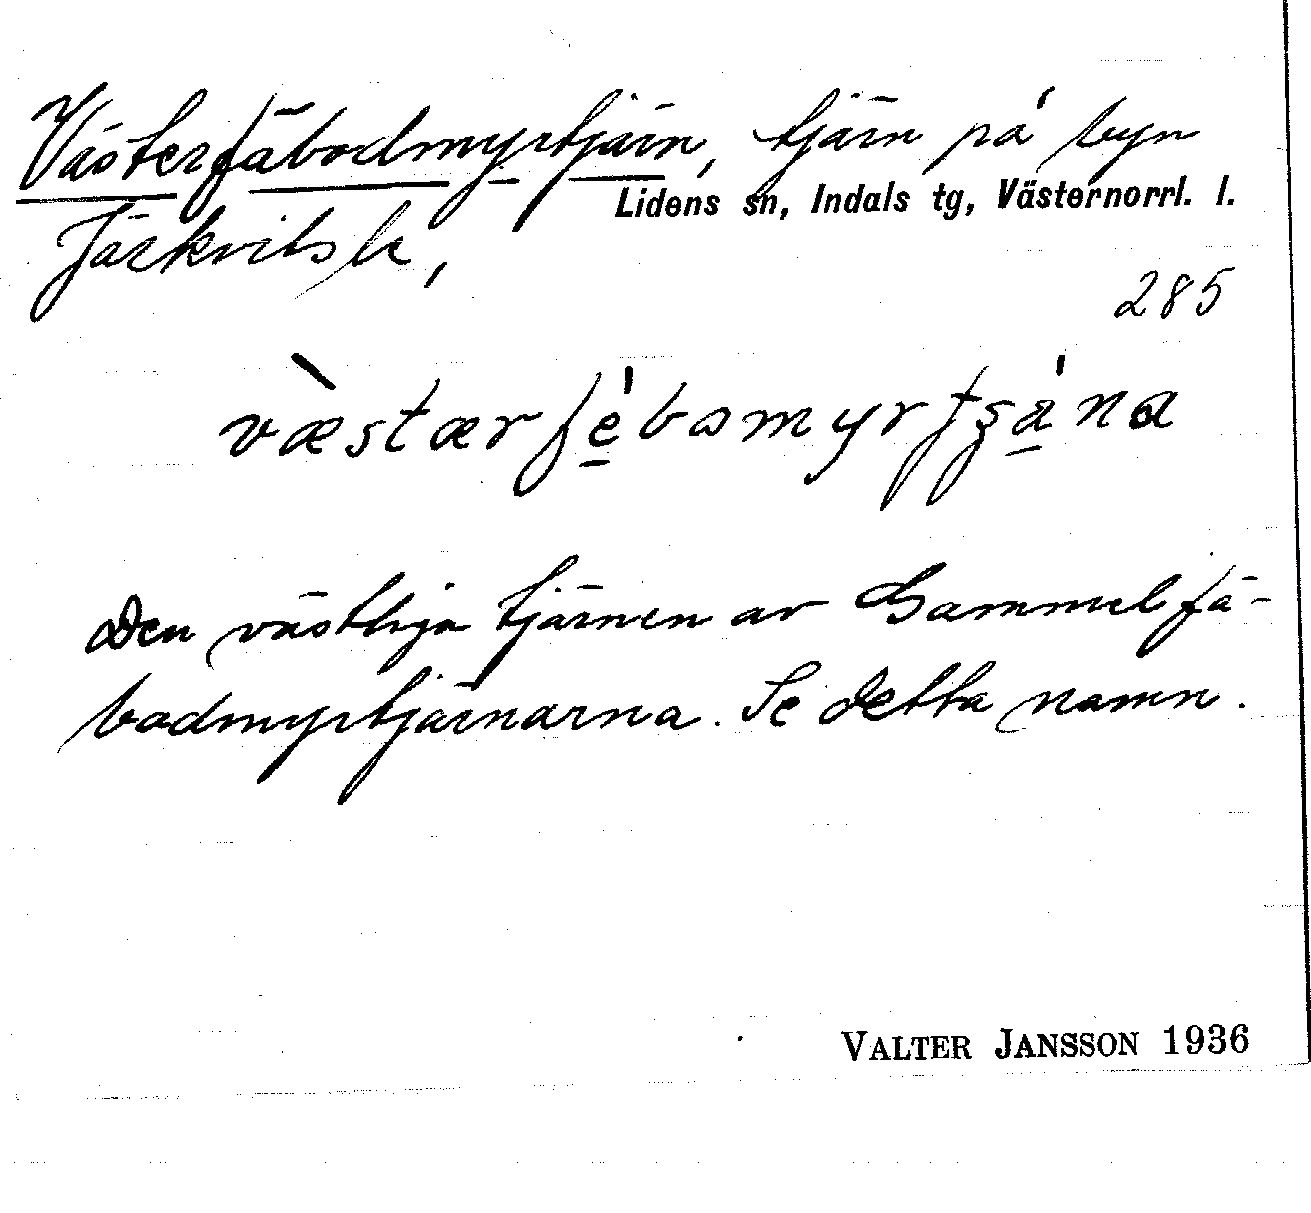 Västerfäbodmyrtjärn, tjärn på byn
Lidens sn, Indals tg, Västernorrl. l.
Järkvitsle,
285
Den västliga tjärnen av Gammelfä-
bodmyrtjärnarna. Se detta namn.
VALTER JANSSON 1936